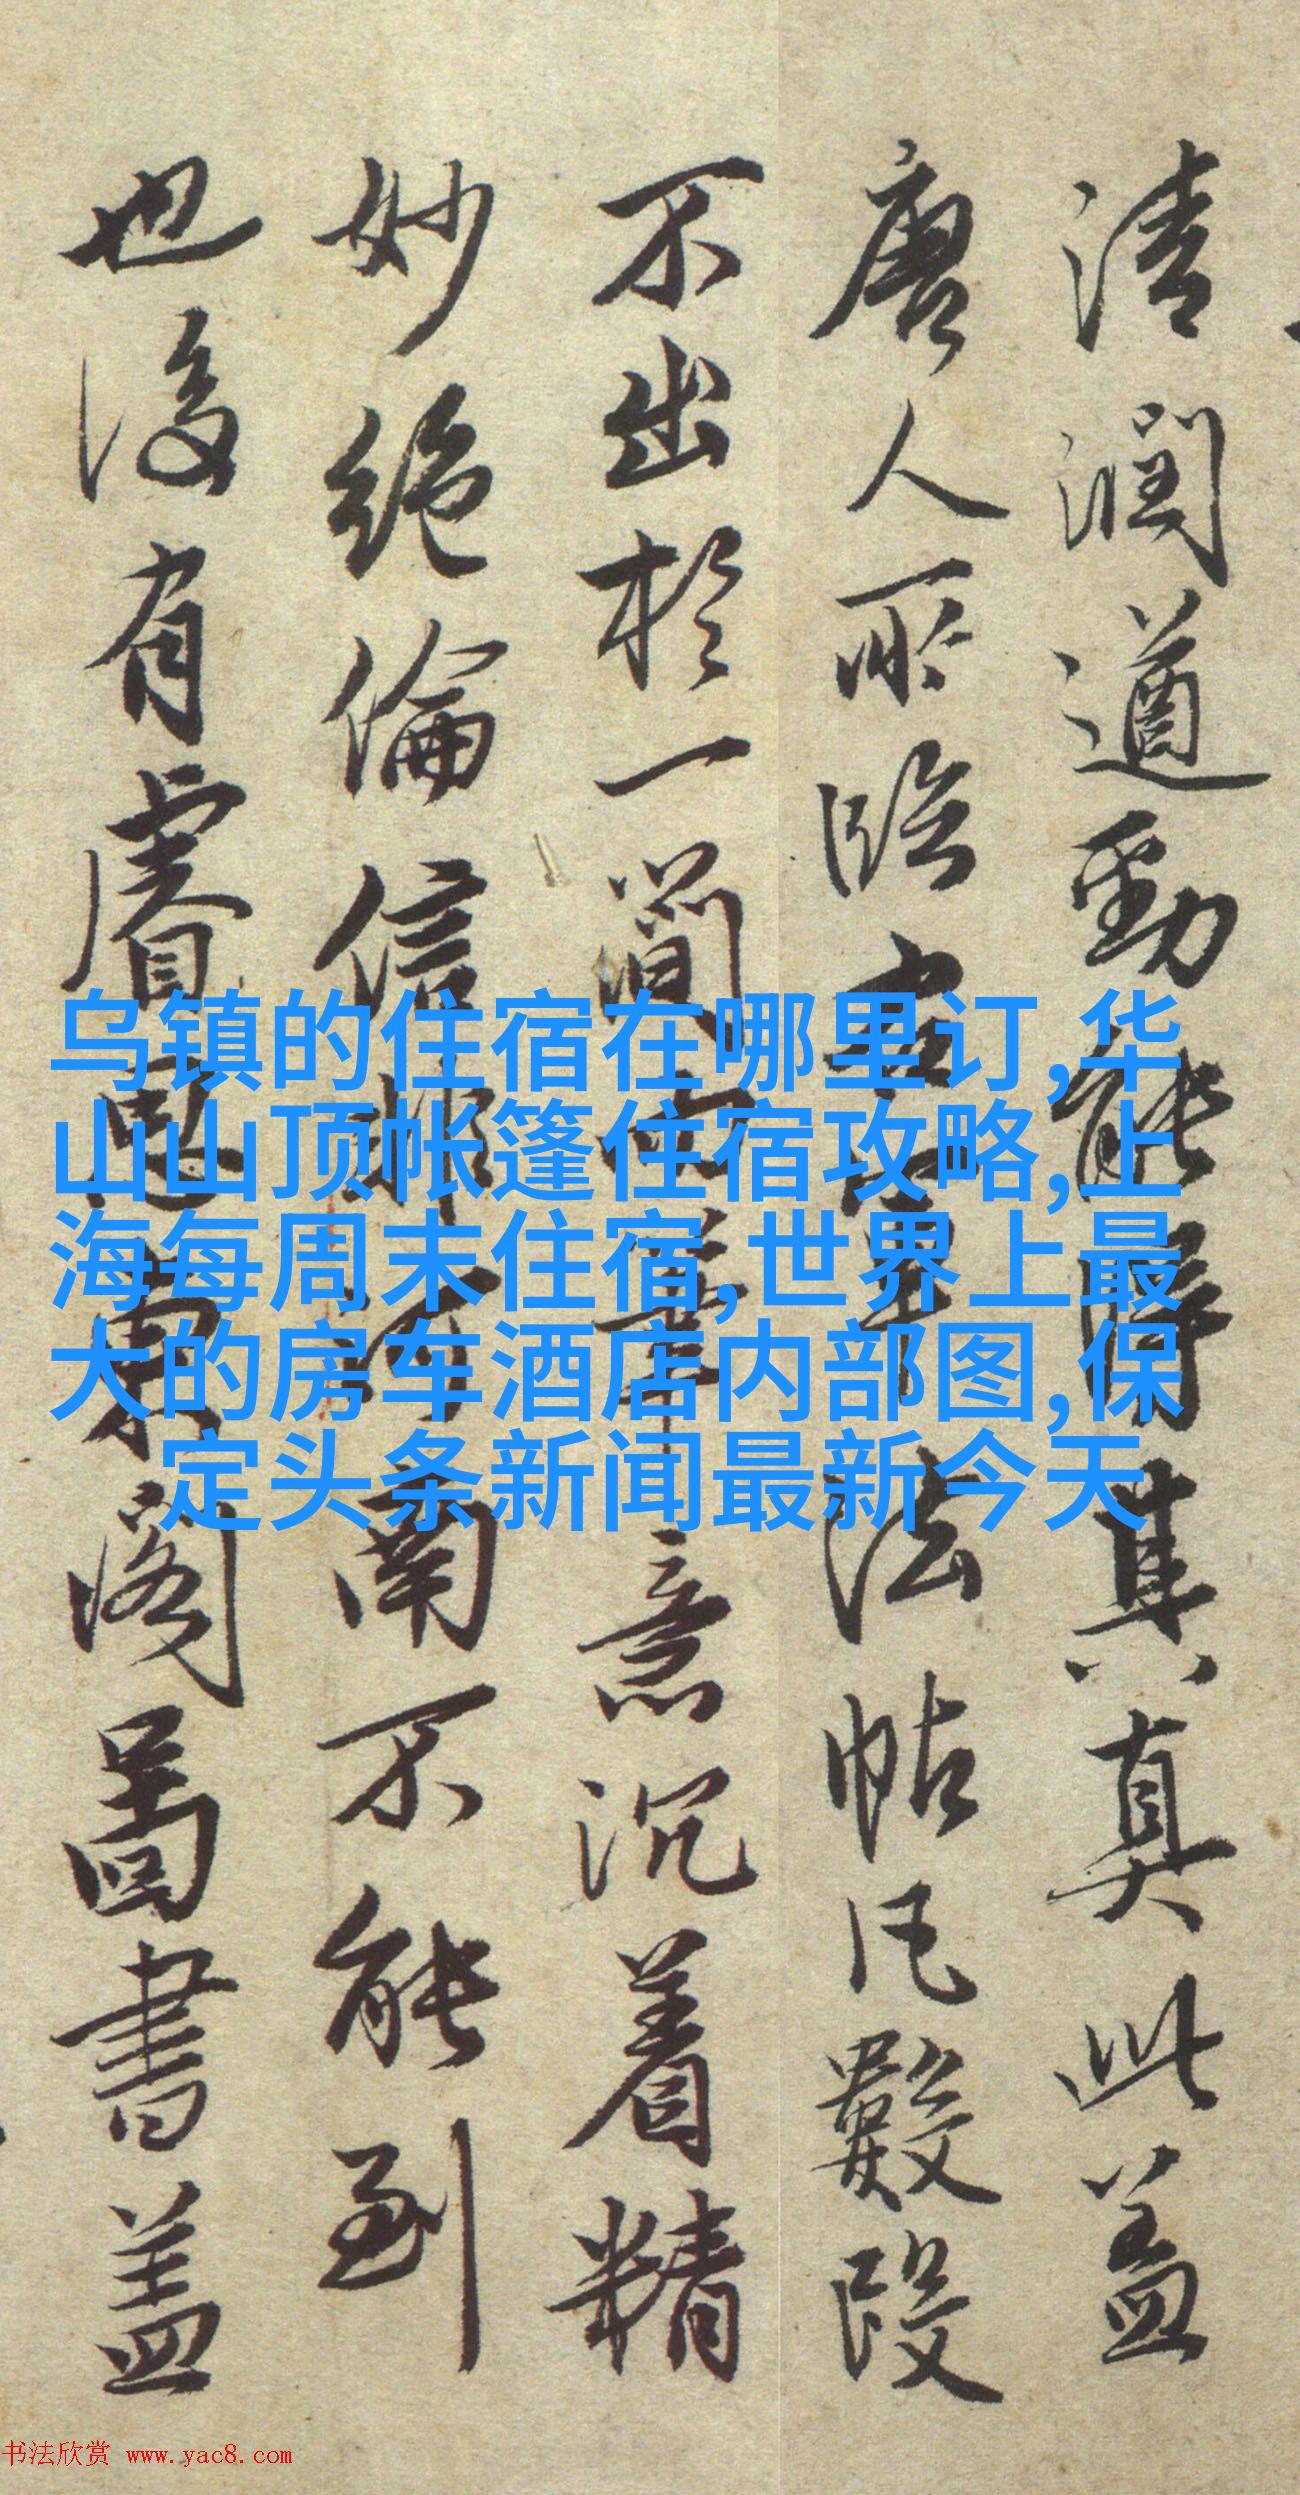 清潤遒勁能得其真此盖
唐人所臨法帖凡數段
不出於一簡筆意沉着精
妙絕倫信南不能到
也後有睿思東閣圖書盖
乌镇的住宿在哪里订,华
山山顶帐篷住宿攻略,上
海每周末住宿,世界上最
大的房车酒店内部图,保
定头条新闻最新今天
书法欣赏 www.yac8.com